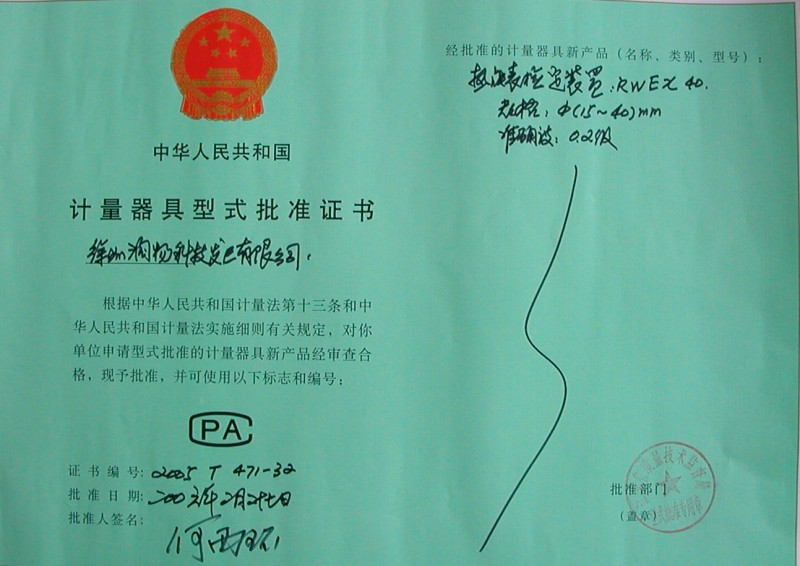 中华人民共和国
计量器具型式批准证书
徐州润物科技发展有限公司.
根据中华人民共和国计量法第十三条和中
华人民共和国计量法实施细则有关规定，对你
单位申请型式批准的计量器具新产品经审查合
格，现予批准，并可使用以下标志和编号：
PA
证书编号: 2005 T 471-32
批准日期: 2005年2月27日
批准人签名:
经批准的计量器具新产品（名称、类别、型号）:
热能表检定装置: RWEX 40.
规格: Φ(15~40)mm
准确度: 0.2级
批准部门
（盖章）